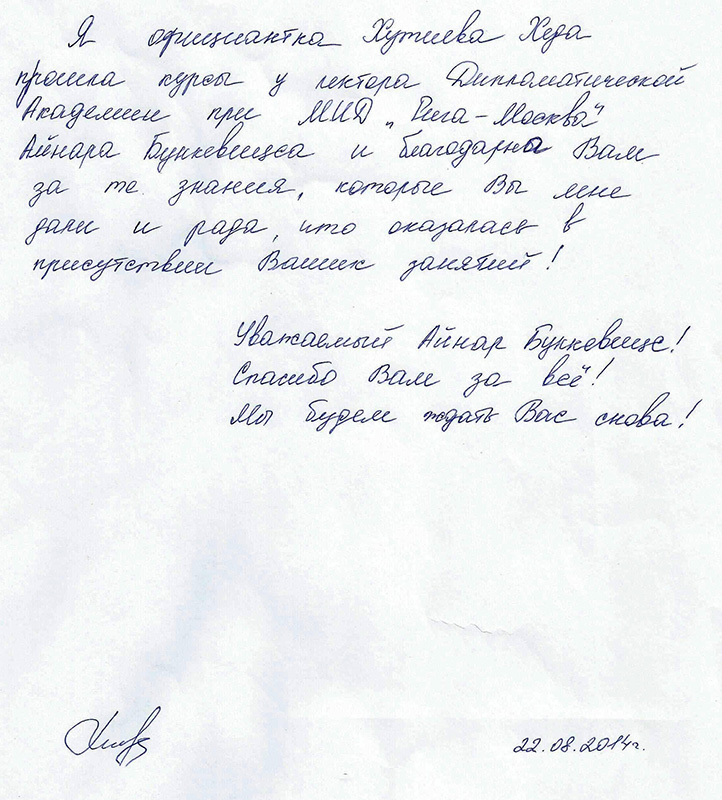 Я официантка Хутиева Хеда
прошла курсы у лектора Дипломатической
Академии при МИД „Рига-Москва"
Айнара Бункевицса и благодарна Вам
за те знания, которые Вы мне
дали и рада, что оказалась в
присутствии Ваших занятий!
Уважаемый Айнар Бункевицс!
Спасибо Вам за всё!
Мы будем ждать Вас снова!
22.08.2014г.